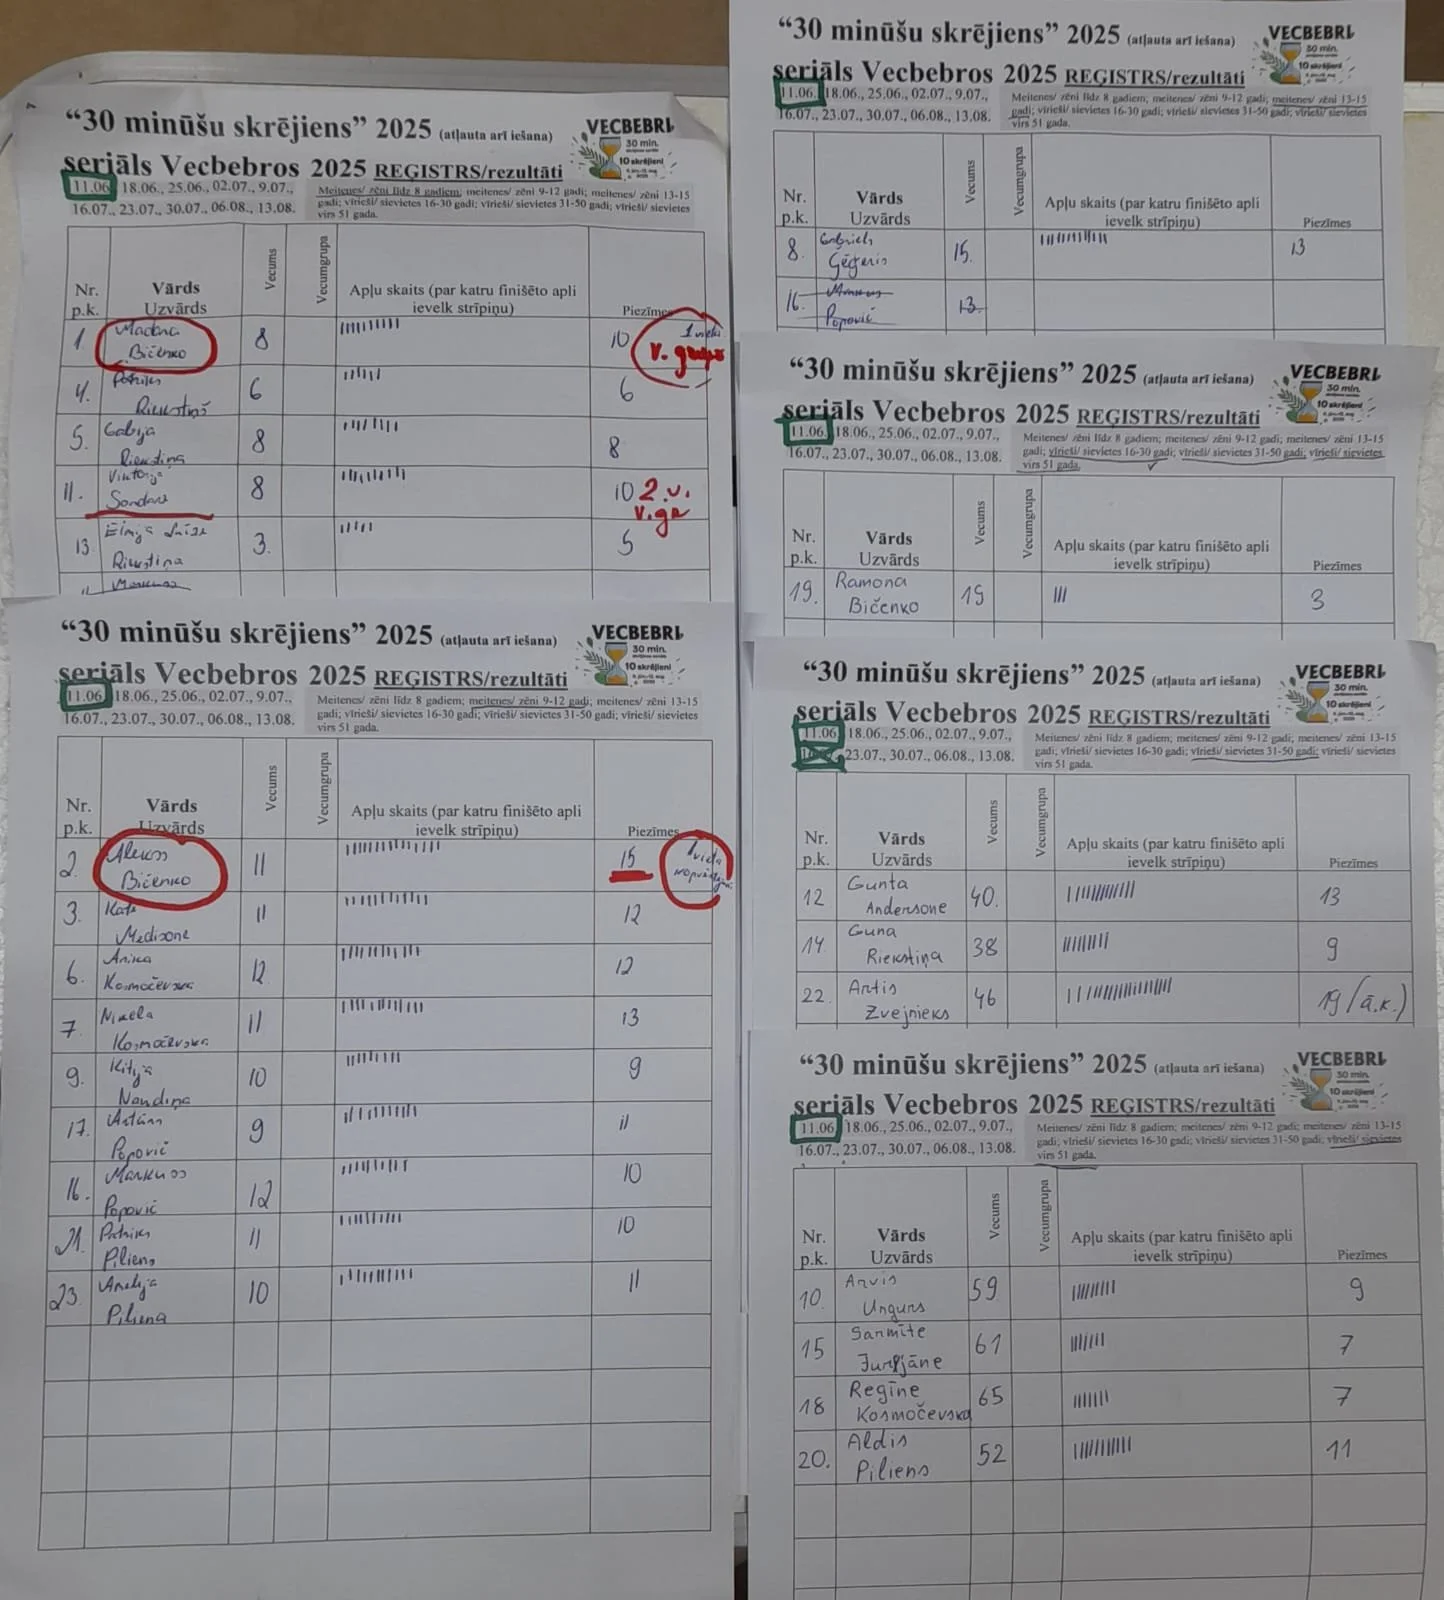 “30 minūšu skrējiens” 2025 (atļauta arī iešana)
VECBEBRI
30 min.
10 skrējieni
seriāls Vecbebros 2025 REĢISTRS/rezultāti
11.06. 18.06., 25.06., 02.07., 9.07.,
16.07., 23.07., 30.07., 06.08., 13.08.
Meitenes/ zēni līdz 8 gadiem; meitenes/ zēni 9-12 gadi; meitenes/ zēni 13-15
gadi; vīrieši/ sievietes 16-30 gadi; vīrieši/ sievietes 31-50 gadi; vīrieši/ sievietes
virs 51 gada.
Nr. p.k. Vārds Uzvārds Vecums Vecumgrupa Apļu skaits (par katru finišēto apli ievelk strīpiņu) Piezīmes
1 Madara Bičenko 8 10 1 vieta v. grupā
4. Patriks Riekstiņš 6 6
5. Gabija Riekstiņa 8 8
11. Viktorija Sondare 8 10 2.v. v.gr
13. Elmija Luīze Riekstiņa 3. 5
Markuss
“30 minūšu skrējiens” 2025 (atļauta arī iešana)
VECBEBRI
30 min.
10 skrējieni
seriāls Vecbebros 2025 REĢISTRS/rezultāti
11.06. 18.06., 25.06., 02.07., 9.07.,
16.07., 23.07., 30.07., 06.08., 13.08.
Meitenes/ zēni līdz 8 gadiem; meitenes/ zēni 9-12 gadi; meitenes/ zēni 13-15
gadi; vīrieši/ sievietes 16-30 gadi; vīrieši/ sievietes 31-50 gadi; vīrieši/ sievietes
virs 51 gada.
Nr. p.k. Vārds Uzvārds Vecums Vecumgrupa Apļu skaits (par katru finišēto apli ievelk strīpiņu) Piezīmes
2. Alekss Bičenko 11 15 1 vieta
3. Kate Medisone 11 12
6. Anika Kosmočevska 12 12
7. Nikela Kosmočevska 11 13
9. Kitija Nandiņa 10 9
17. Artūrs Popovič 9 11
16. Markuss Popovič 12 10
21. Patriks Piliens 11 10
23. Amēlija Piliena 10 11
“30 minūšu skrējiens” 2025 (atļauta arī iešana)
VECBEBRI
30 min.
10 skrējieni
seriāls Vecbebros 2025 REĢISTRS/rezultāti
11.06. 18.06., 25.06., 02.07., 9.07.,
16.07., 23.07., 30.07., 06.08., 13.08.
Meitenes/ zēni līdz 8 gadiem; meitenes/ zēni 9-12 gadi; meitenes/ zēni 13-15
gadi; vīrieši/ sievietes 16-30 gadi; vīrieši/ sievietes 31-50 gadi; vīrieši/ sievietes
virs 51 gada.
Nr. p.k. Vārds Uzvārds Vecums Vecumgrupa Apļu skaits (par katru finišēto apli ievelk strīpiņu) Piezīmes
8. Gabriels Ģēģeris 15. 13
16. Markuss Popovič 13.
“30 minūšu skrējiens” 2025 (atļauta arī iešana)
VECBEBRI
30 min.
10 skrējieni
seriāls Vecbebros 2025 REĢISTRS/rezultāti
11.06. 18.06., 25.06., 02.07., 9.07.,
16.07., 23.07., 30.07., 06.08., 13.08.
Meitenes/ zēni līdz 8 gadiem; meitenes/ zēni 9-12 gadi; meitenes/ zēni 13-15
gadi; vīrieši/ sievietes 16-30 gadi; vīrieši/ sievietes 31-50 gadi; vīrieši/ sievietes
virs 51 gada.
Nr. p.k. Vārds Uzvārds Vecums Vecumgrupa Apļu skaits (par katru finišēto apli ievelk strīpiņu) Piezīmes
19. Ramona Bičenko 19 3
“30 minūšu skrējiens” 2025 (atļauta arī iešana)
VECBEBRI
30 min.
10 skrējieni
seriāls Vecbebros 2025 REĢISTRS/rezultāti
11.06. 18.06., 25.06., 02.07., 9.07.,
23.07., 30.07., 06.08., 13.08.
Meitenes/ zēni līdz 8 gadiem; meitenes/ zēni 9-12 gadi; meitenes/ zēni 13-15
gadi; vīrieši/ sievietes 16-30 gadi; vīrieši/ sievietes 31-50 gadi; vīrieši/ sievietes
virs 51 gada.
Nr. p.k. Vārds Uzvārds Vecums Vecumgrupa Apļu skaits (par katru finišēto apli ievelk strīpiņu) Piezīmes
12 Gunta Andersone 40. 13
14. Guna Riekstiņa 38 9
22. Artis Zvejnieks 46 19 (ā.k.)
“30 minūšu skrējiens” 2025 (atļauta arī iešana)
VECBEBRI
30 min.
10 skrējieni
seriāls Vecbebros 2025 REĢISTRS/rezultāti
11.06. 18.06., 25.06., 02.07., 9.07.,
16.07., 23.07., 30.07., 06.08., 13.08.
Meitenes/ zēni līdz 8 gadiem; meitenes/ zēni 9-12 gadi; meitenes/ zēni 13-15
gadi; vīrieši/ sievietes 16-30 gadi; vīrieši/ sievietes 31-50 gadi; vīrieši/ sievietes
virs 51 gada.
Nr. p.k. Vārds Uzvārds Vecums Vecumgrupa Apļu skaits (par katru finišēto apli ievelk strīpiņu) Piezīmes
10. Arvis Ungurs 59 9
15 Sarmīte Jurģjāne 61 7
18 Regīne Kosmočevska 65 7
20. Aldis Piliens 52 11